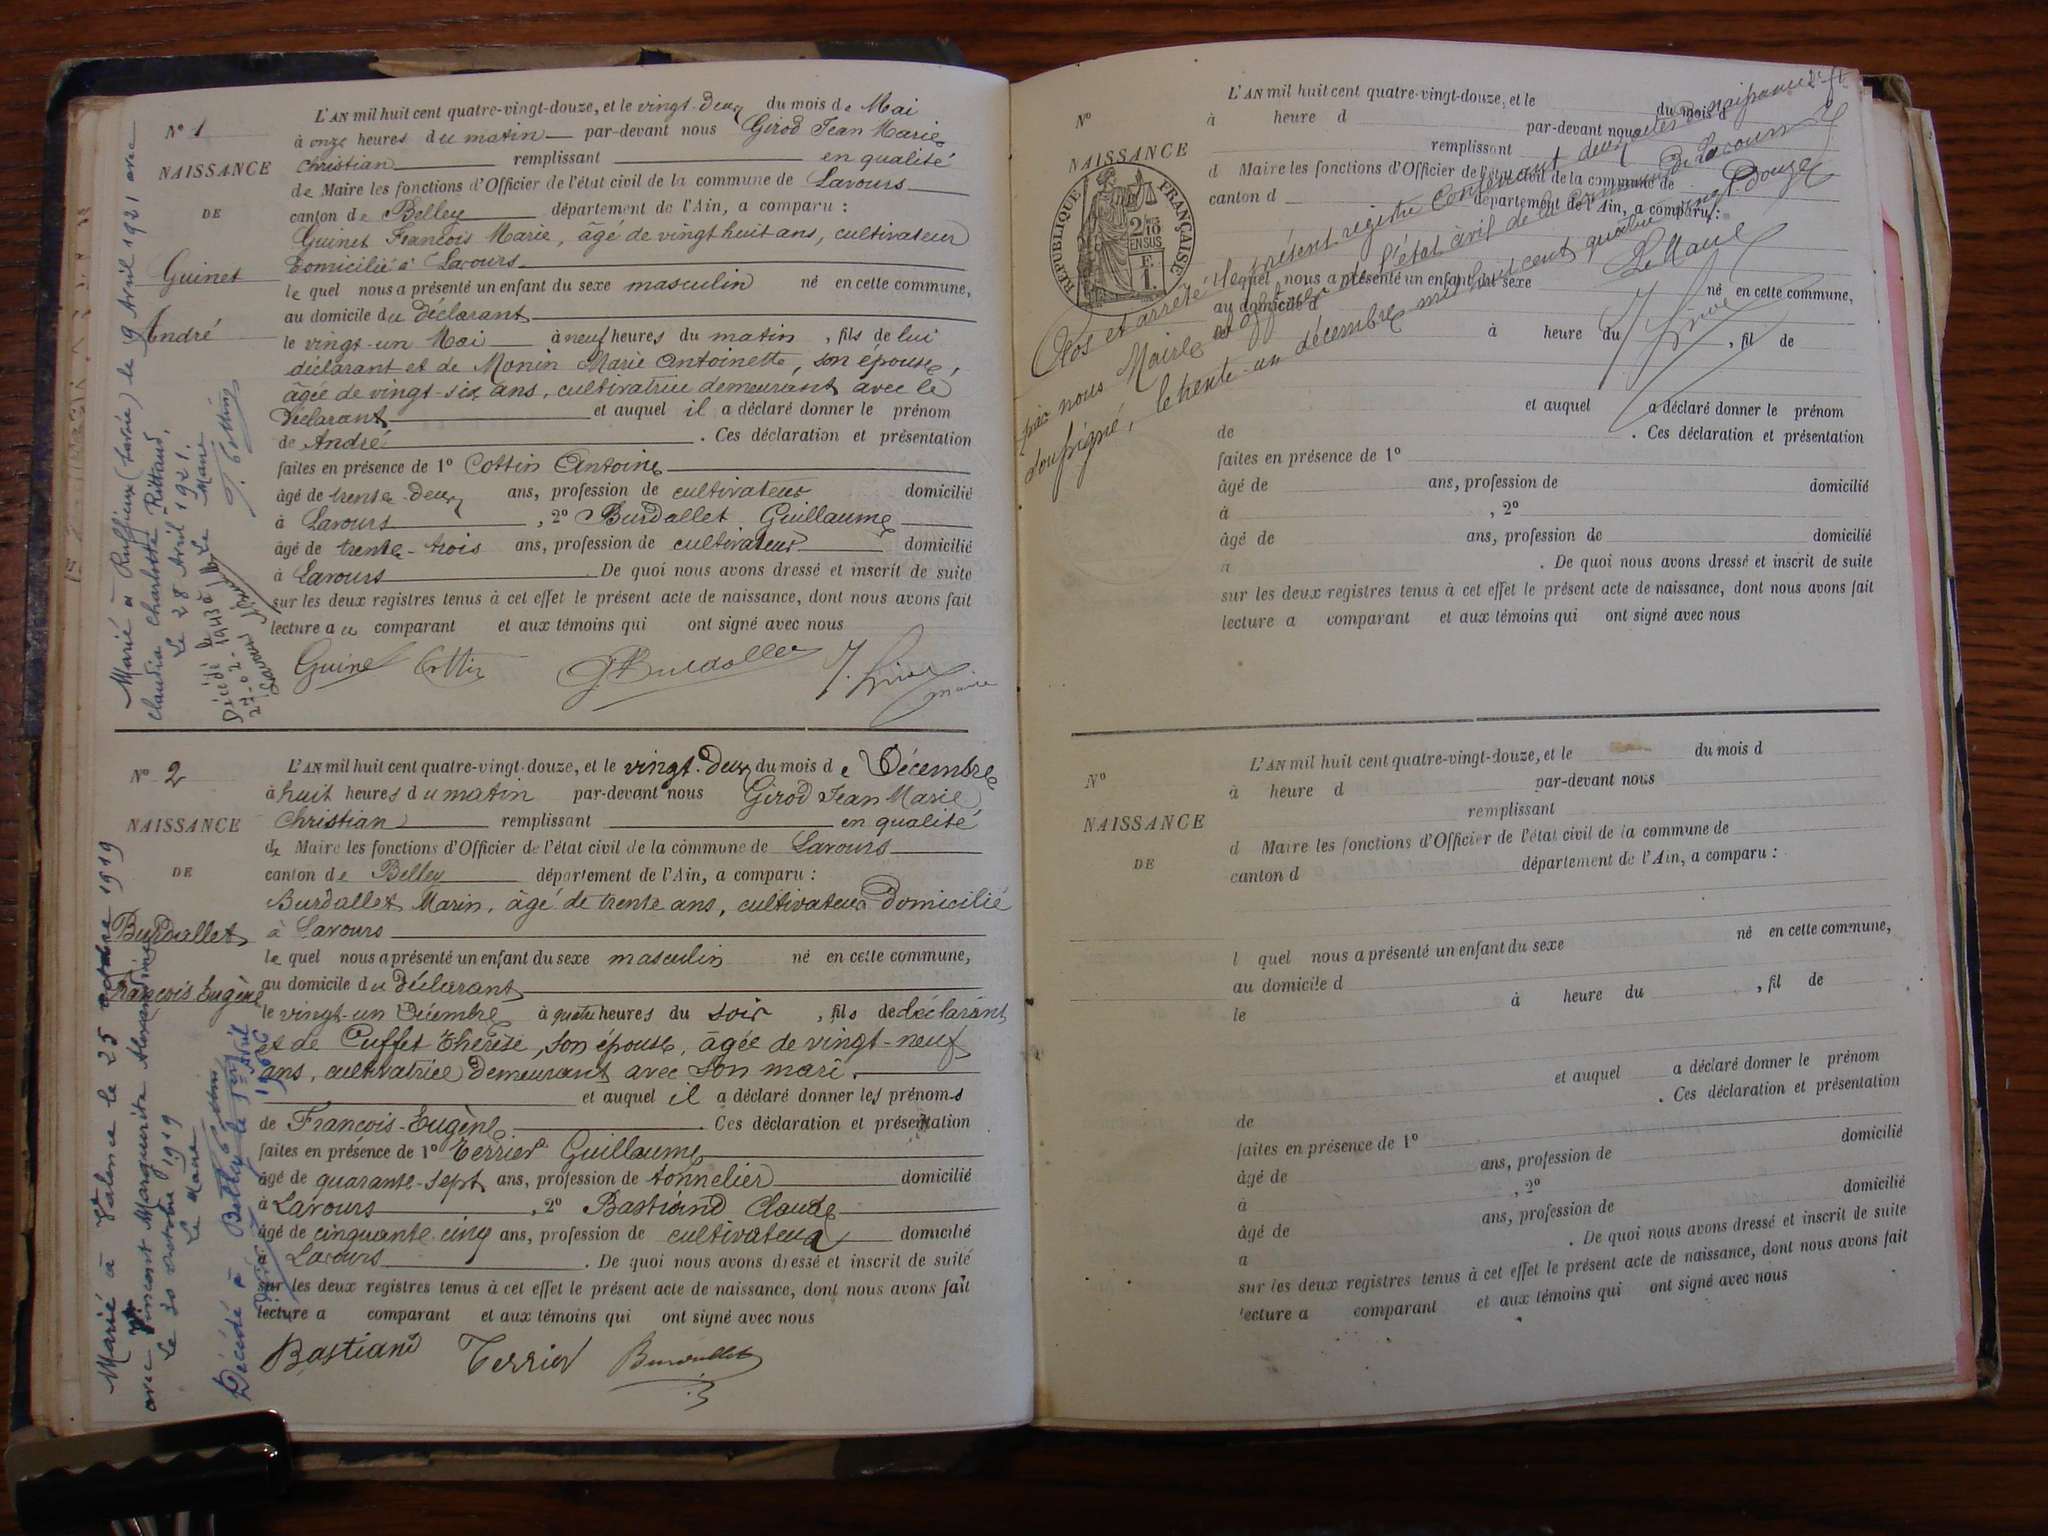 N° 1
NAISSANCE
DE
Guinet
André
L'AN mil huit cent quatre-vingt-douze, et le vingt-deux du mois de Mai
à onze heures du matin par-devant nous Girod Jean Marie
Christian remplissant en qualité
de Maire les fonctions d'Officier de l'état civil de la commune de Lavours
canton de Belley département de l'Ain, a comparu :
Guinet François Marie, âgé de vingt huit ans, cultivateur
domicilié à Lavours
le quel nous a présenté un enfant du sexe masculin né en cette commune,
au domicile du déclarant
le vingt-un Mai à neuf heures du matin, fils de lui
déclarant et de Monin Marie Antoinette, son épouse,
âgée de vingt-six ans, cultivatrice demeurant avec le
déclarant et auquel il a déclaré donner le prénom
de André. Ces déclaration et présentation
faites en présence de 1° Cottin Antoine
âgé de trente-deux ans, profession de cultivateur domicilié
à Lavours, 2° Burdallet Guillaume
âgé de trente-trois ans, profession de cultivateur domicilié
à Lavours De quoi nous avons dressé et inscrit de suite
sur les deux registres tenus à cet effet le présent acte de naissance, dont nous avons fait
lecture au comparant et aux témoins qui ont signé avec nous
Guinet Cottin G Burdallet
maire
Marié à Ruffieux (Savoie) le 9 Avril 1921 avec
Claudia Charlotte Rittaud.
Le 28 Avril 1921.
Le Maire
Décédé le
Lavours
N° 2
NAISSANCE
DE
Burdallet
François Eugène
L'AN mil huit cent quatre-vingt-douze, et le vingt-deux du mois de Décembre
à huit heures du matin par-devant nous Girod Jean Marie
Christian remplissant en qualité
de Maire les fonctions d'Officier de l'état civil de la commune de Lavours
canton de Belley département de l'Ain, a comparu :
Burdallet Marin, âgé de trente ans, cultivateur domicilié
à Lavours
le quel nous a présenté un enfant du sexe masculin né en cette commune,
au domicile du déclarant
le vingt-un Décembre à quatre heures du soir, fils de déclarant
et de Cuffet Thérèse, son épouse, âgée de vingt-neuf
ans, cultivatrice demeurant avec son mari.
et auquel il a déclaré donner les prénoms
de François-Eugène. Ces déclaration et présentation
faites en présence de 1° Terrier Guillaume
âgé de quarante-sept ans, profession de tonnelier domicilié
à Lavours, 2° Bastiand Claude
âgé de cinquante cinq ans, profession de cultivateur domicilié
à Lavours. De quoi nous avons dressé et inscrit de suite
sur les deux registres tenus à cet effet le présent acte de naissance, dont nous avons fait
lecture a comparant et aux témoins qui ont signé avec nous
Bastiand Terrier Burdallet
Marié à Valence le 25 octobre 1919
avec Vincent Marguerite Alexandrine
Le 30 octobre 1919
Le Maire
Décédé à Belley le 1er Avril
1966
N°
NAISSANCE
RÉPUBLIQUE FRANÇAISE
2/10
EN SUS
L'AN mil huit cent quatre-vingt-douze, et le du mois d
à heure d par-devant nous
remplissant
d Maire les fonctions d'Officier de l'état civil de la commune de
canton d département de l'Ain, a comparu :
l quel nous a présenté un enfant du sexe né en cette commune,
au domicile d
le à heure du, fil de
et auquel a déclaré donner le prénom
de. Ces déclaration et présentation
faites en présence de 1°
âgé de ans, profession de domicilié
à, 2°
âgé de ans, profession de domicilié
a. De quoi nous avons dressé et inscrit de suite
sur les deux registres tenus à cet effet le présent acte de naissance, dont nous avons fait
lecture a comparant et aux témoins qui ont signé avec nous
Clos et arrêté le présent registre contenant deux actes de naissances
par nous Maire officier de l'état civil de la commune de Lavours
soussigné, le trente-un décembre mil huit cent quatre-vingt douze
Le Maire
N°
NAISSANCE
DE
L'AN mil huit cent quatre-vingt-douze, et le du mois d
à heure d par-devant nous
remplissant
d Maire les fonctions d'Officier de l'état civil de la commune de
canton d département de l'Ain, a comparu :
l quel nous a présenté un enfant du sexe né en cette commune,
au domicile d
le à heure du, fil de
et auquel a déclaré donner le prénom
de. Ces déclaration et présentation
faites en présence de 1°
âgé de ans, profession de domicilié
à, 2°
âgé de ans, profession de domicilié
a. De quoi nous avons dressé et inscrit de suite
sur les deux registres tenus à cet effet le présent acte de naissance, dont nous avons fait
lecture a comparant et aux témoins qui ont signé avec nous